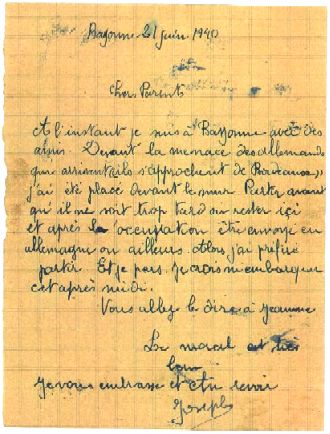 Bayonne 21 juin 1940
Chers Parents
A l'instant je suis à Bayonne avec des
amis. Devant la menace des allemands
qui s'approchent de Bordeaux,
j'ai été placé devant le mur Partir avant
qu'il ne soit trop tard ou rester içi
et après la occupation être envoyé en
allemagne ou ailleurs. Alors j'ai préféré
partir. Et je pars. Je crois m'embarquer
cet après midi.
Vous allez le dire à Jeanne
Le moral est très
bon
Je vous embrasse et Au revoir
Joseph